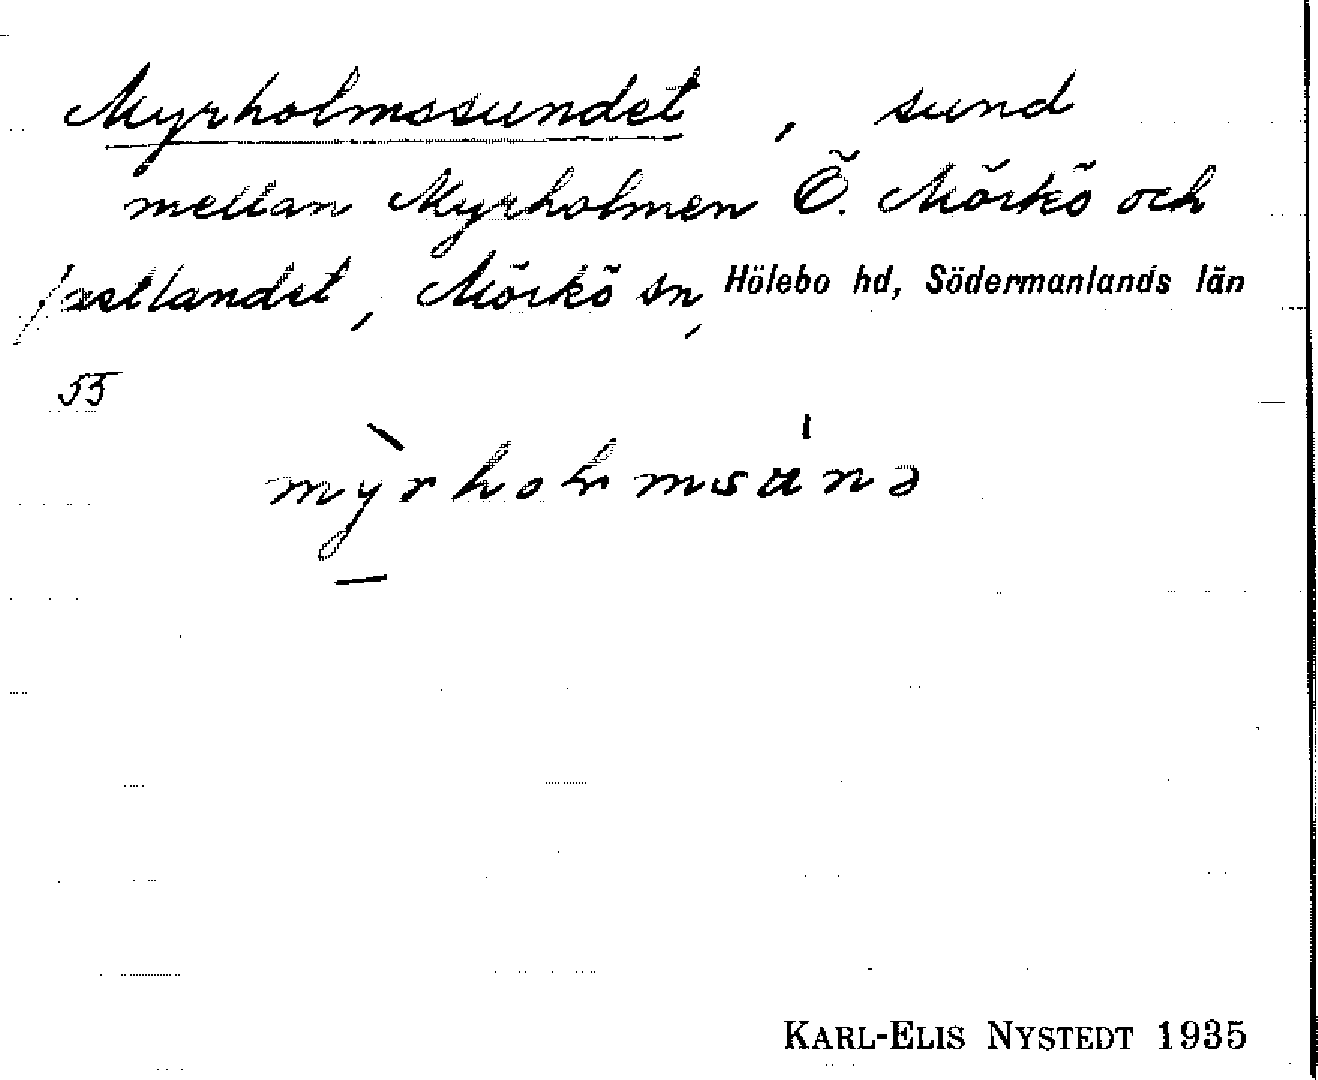 Myrholmssundet, sund
mellan Myrholmen Ö. Mörkö och
fastlandet, Mörkö sn, Hölebo hd, Södermanlands län
55
KARL-ELIS NYSTEDT 1935